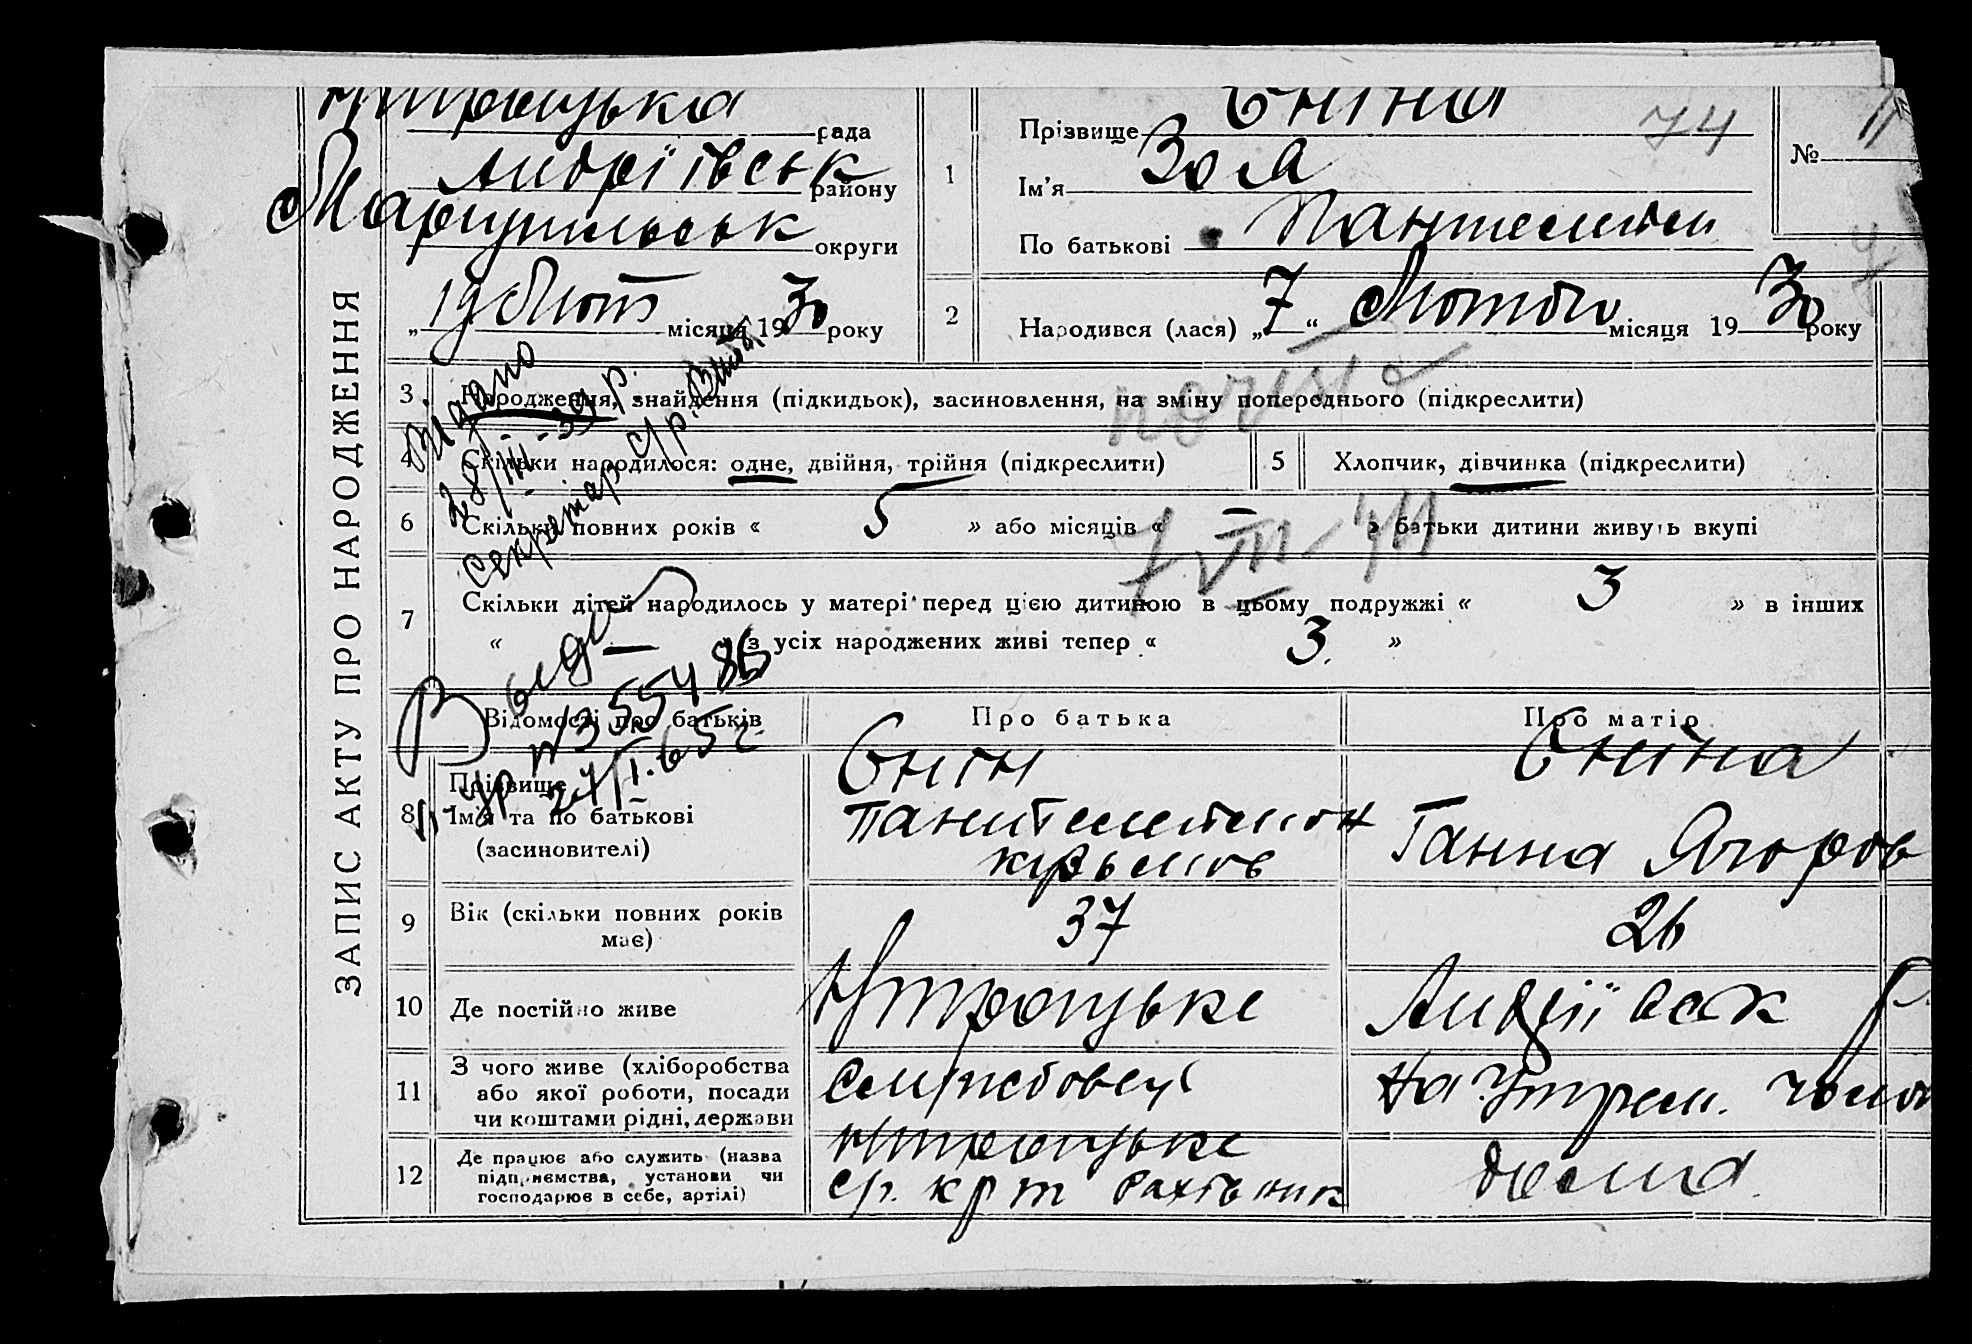 ЗАПИС АКТУ ПРО НАРОДЖЕННЯ
рада
Андріївськ району
Маріупільськ округи
„19 Лют місяця 1930 року
1
Прізвище Єніна
74
Ім'я Зоя
По батькові
№
2
Народився (лася) „7“ Лютого місяця 1930 року
3
Народження, знайдення (підкидьок), засиновлення, на зміну попереднього (підкреслити)
4
Скільки народилося: одне, двійня, трійня (підкреслити)
5
Хлопчик, дівчинка (підкреслити)
6
Скільки повних років « 5 » або місяців « — » батьки дитини живуть вкупі
7
Скільки дітей народилось у матері перед цією дитиною в цьому подружжі « 3 » в інших
« — » з усіх народжених живі тепер « 3. »
Видано
28/III-39 р.
Секретар с/р.
Выдано
24/I.65 г.
Відомості про батьків
Про батька
Про матір
8
Прізвище
Ім'я та по батькові
(засиновителі)
Єнін
Пантелеймон
Кузьмов
Єніна
Ганна Ягоров
9
Вік (скільки повних років
має)
37
26
10
Де постійно живе
Андріївськ р
11
З чого живе (хліборобства
або якої роботи, посади
чи коштами рідні, держави
Службовец
на утрим. чолов
12
Де працює або служить (назва
підприємства, установи чи
господарює в себе, артілі)
с/г. кр т рахівник
дома